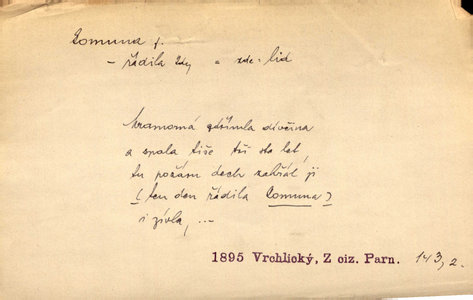 Comuna f.
– řádila kdy a zde: lid
Mramorná zdřímla dívčina
a spala tiše tři sta let,
tu požáru dech zahřál ji
(ten den řádila Comuna)
i zívla, ...
1895 Vrchlický, Z ciz. Parn. 143, 2.